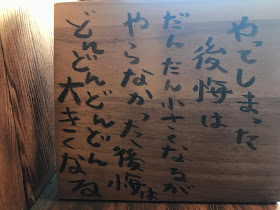 やってしまった
後悔は
だんだん小さくなるが
やらなかった後悔は
どんどんどんどん
大きくなる